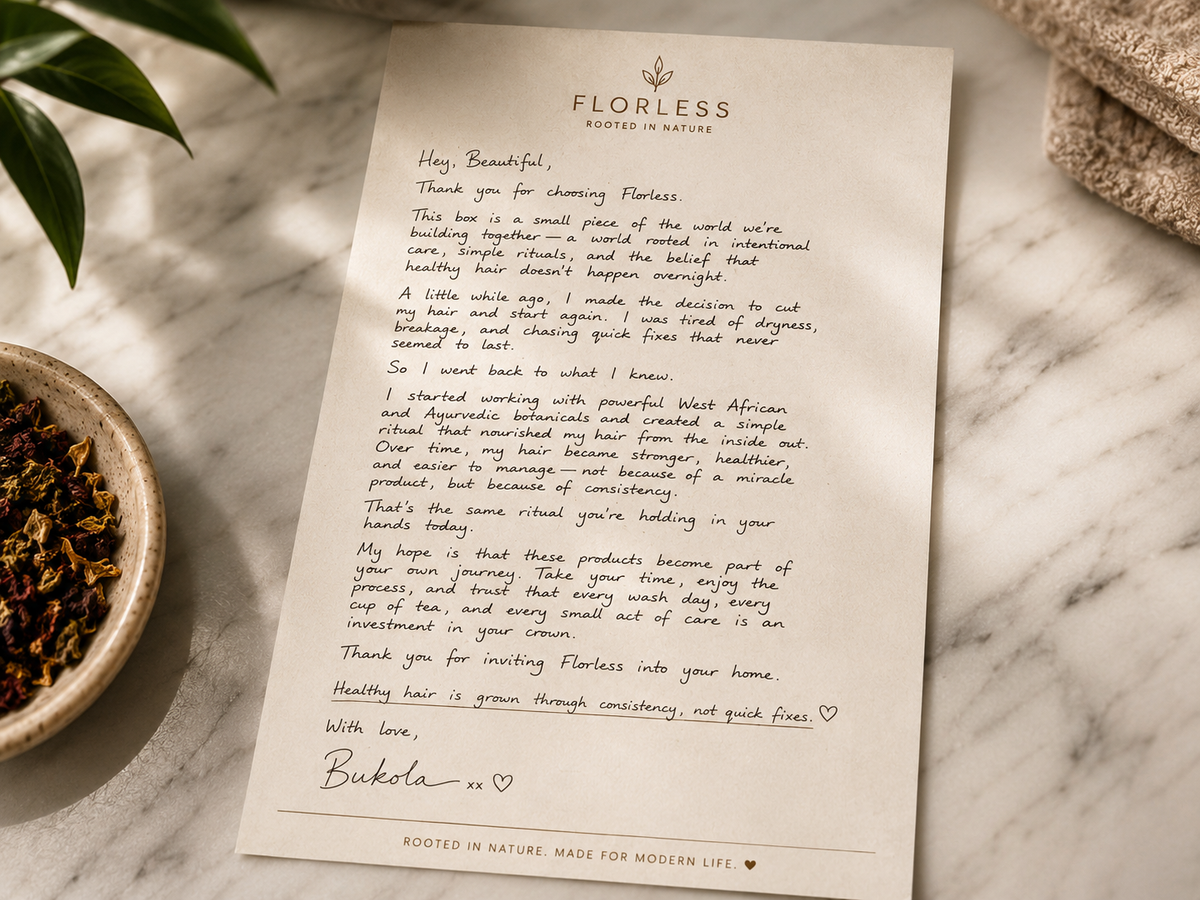 FLORLESS
ROOTED IN NATURE
Hey, Beautiful,
Thank you for choosing Florless.
This box is a small piece of the world we're
building together — a world rooted in intentional
care, simple rituals, and the belief that
healthy hair doesn't happen overnight.
A little while ago, I made the decision to cut
my hair and start again. I was tired of dryness,
breakage, and chasing quick fixes that never
seemed to last.
So I went back to what I knew.
I started working with powerful West African
and Ayurvedic botanicals and created a simple
ritual that nourished my hair from the inside out.
Over time, my hair became stronger, healthier,
and easier to manage — not because of a miracle
product, but because of consistency.
That's the same ritual you're holding in your
hands today.
My hope is that these products become part of
your own journey. Take your time, enjoy the
process, and trust that every wash day, every
cup of tea, and every small act of care is an
investment in your crown.
Thank you for inviting Florless into your home.
Healthy hair is grown through consistency, not quick fixes. ♡
With love,
Bukola xx ♡
ROOTED IN NATURE. MADE FOR MODERN LIFE. ♥